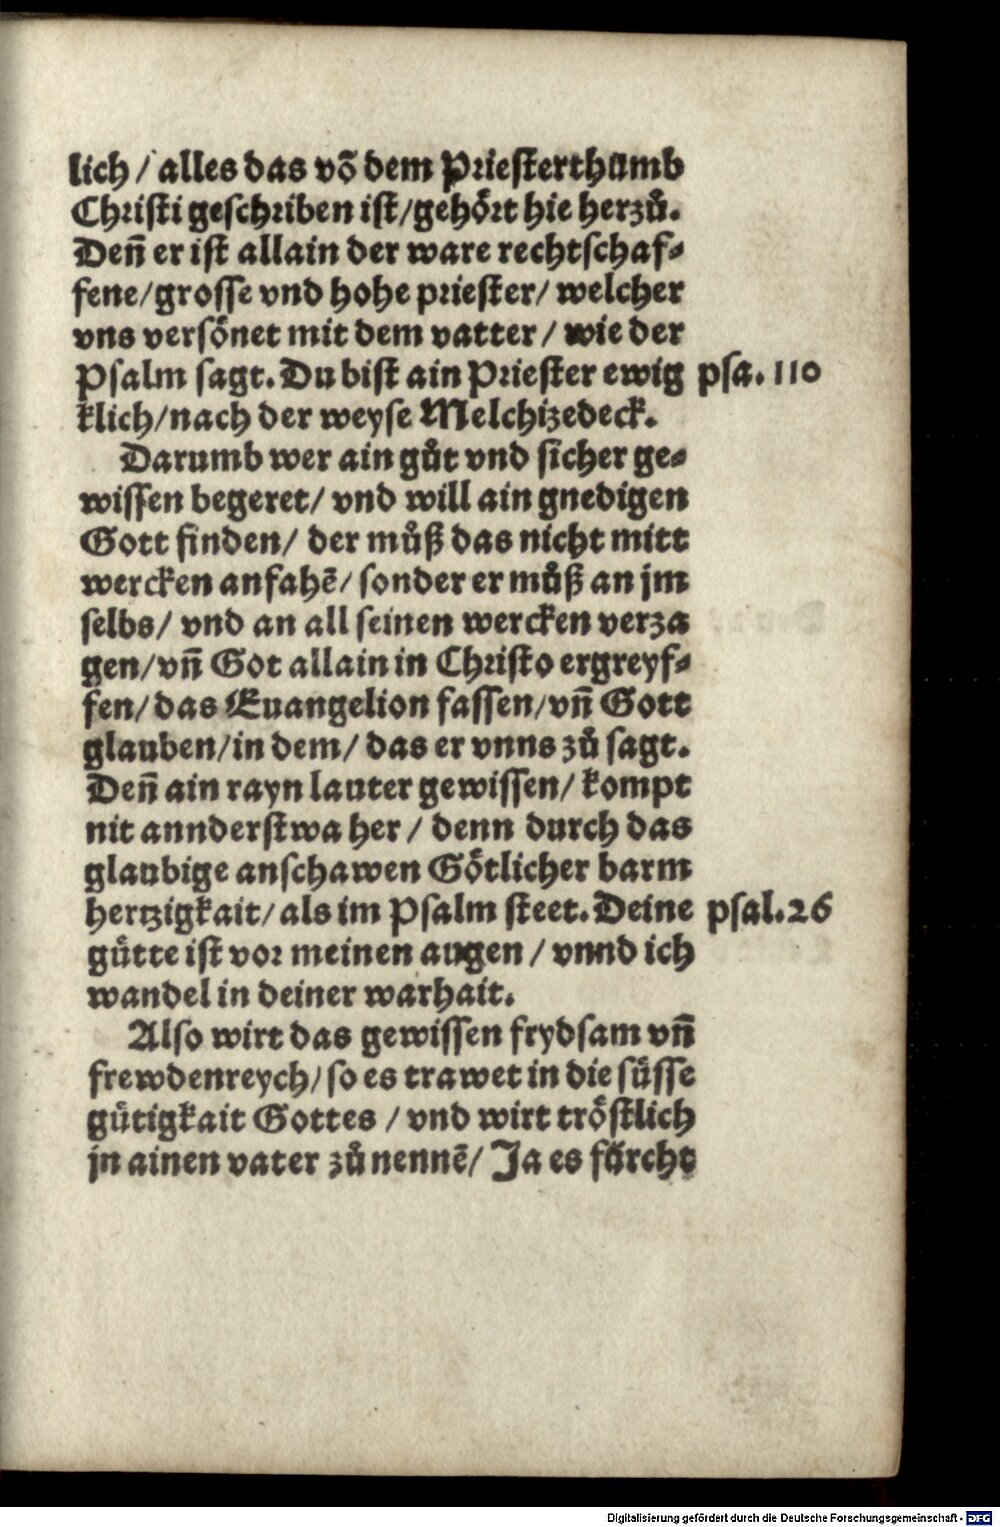 lich / alles das võ dem Priesterthumb
Christi geschriben ist/gehoͤrt hie herzuͦ.
Deñ er ist allain der ware rechtschaf⸗
fene/grosse vnd hohe priester/ welcher
vns versoͤnet mit dem vatter / wie der
Psalm sagt. Du bist ain Priester ewig psa. 110
klich/nach der weyse Melchizedeck.
Darumb wer ain guͦt vnd sicher ge⸗
wissen begeret/ vnd will ain gnedigen
Gott finden/ der muͦß das nicht mitt
wercken anfahē/ sonder er muͦß an jm
selbs/ vnd an all seinen wercken verza
gen/vñ Got allain in Christo ergreyf⸗
fen/das Euangelion fassen/vñ Gott
glauben/in dem/ das er vnns zuͦ sagt.
Deñ ain rayn lauter gewissen/ kompt
nit annderstwa her / denn durch das
glaubige anschawen Goͤtlicher barm
hertzigkait/ als im Psalm steet. Deine psal.26
guͤtte ist vor meinen augen / vnnd ich
wandel in deiner warhait.
Also wirt das gewissen frydsam vñ
frewdenreych/so es trawet in die suͤsse
guͤtigkait Gottes / vnd wirt troͤstlich
jn ainen vater zuͦ nennē/ Ja es foͤrcht
Digitalisierung gefördert durch die Deutsche Forschungsgemeinschaft - DFG